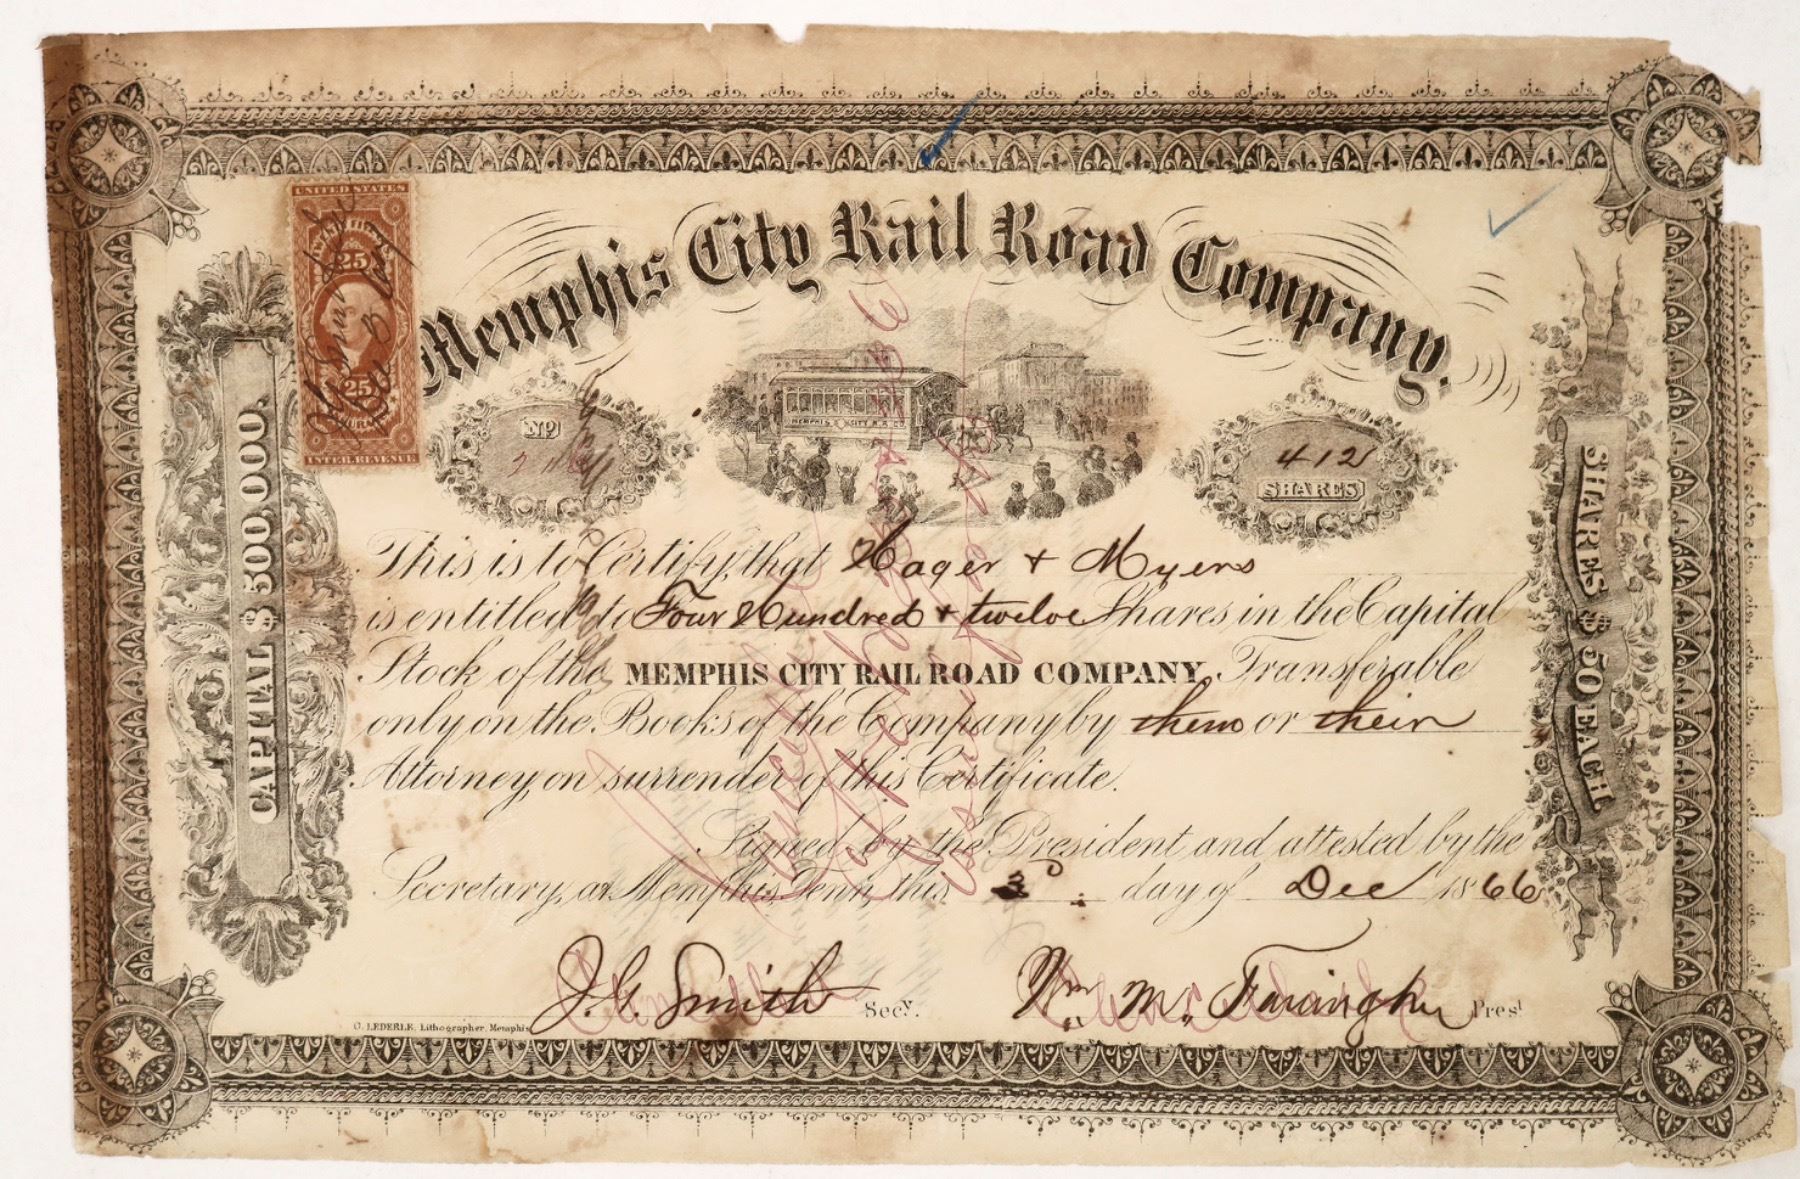 Memphis City Rail Road Company.
UNITED STATES
25
25
INTER. REVENUE
No
412
SHARES
MEMPHIS CITY R.R. CO.
CAPITAL $500,000.
SHARES $50 EACH
This is to Certify, that Hager + Myers
is entitled to Four Hundred + twelve Shares in the Capital
Stock of the MEMPHIS CITY RAIL ROAD COMPANY, Transferable
only on the Books of the Company by them or their
Attorney, on surrender of this Certificate.
Signed by the President and attested by the
Secretary, at Memphis, Tenn, this 3d day of Dec 1866
J. G. Smith Secy. Wm. M. Faringhy Prest
O. LEDERLE, Lithographer, Memphis